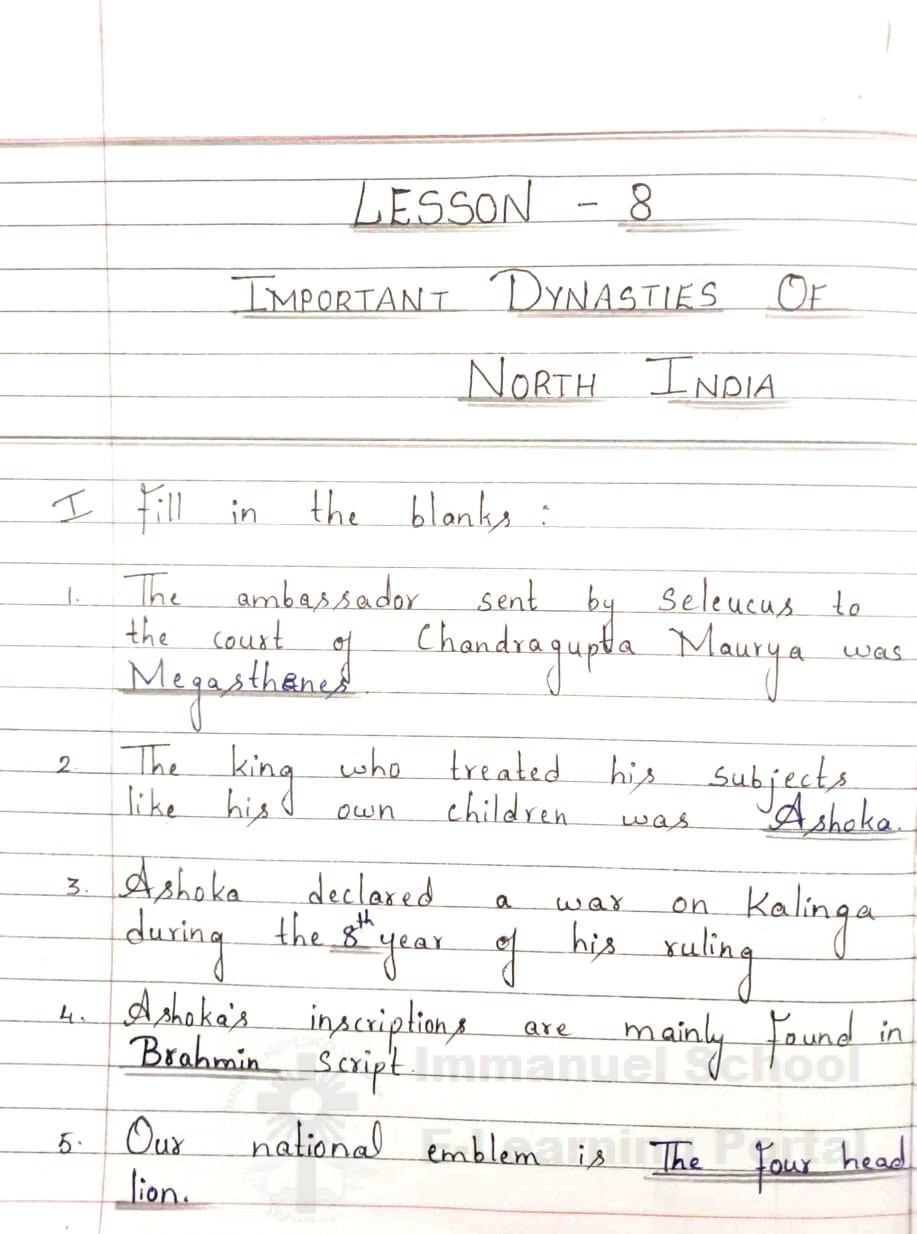 LESSON - 8
IMPORTANT DYNASTIES OF
NORTH INDIA
I Fill in the blanks :
1. The ambassador sent by Seleucus to
the court of Chandragupta Maurya was
Megasthenes.
2. The king who treated his subjects
like his own children was Ashoka.
3. Ashoka declared a war on Kalinga
during the 8th year of his ruling
4. Ashoka's inscriptions are mainly found in
Brahmin script.
Immanuel School
5. Our national emblem is The four head
E-Learning Portal
lion.